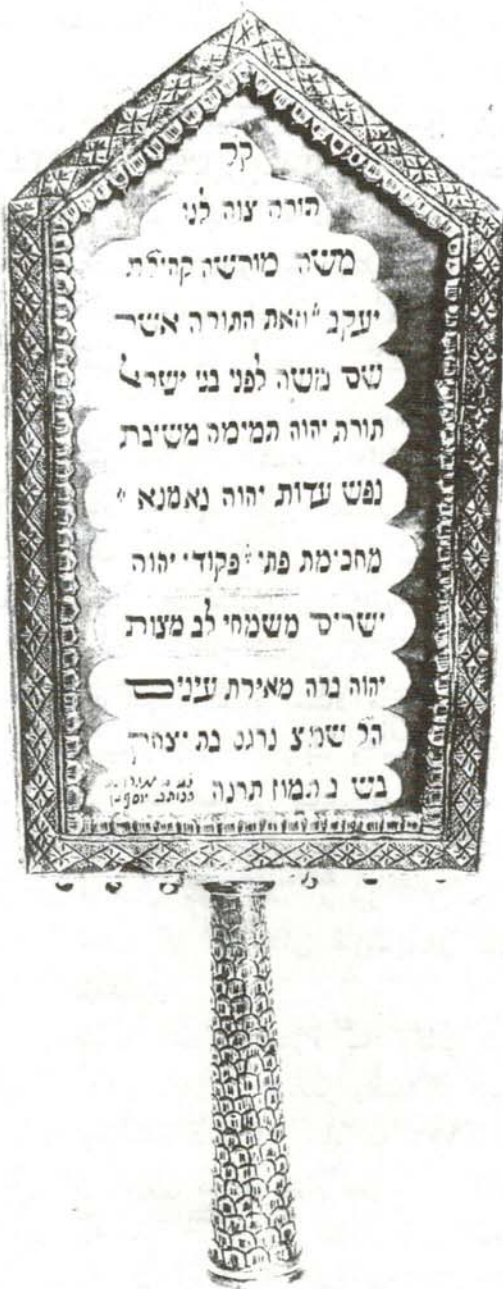 קר
תורה צוה לנו
משה מורשה קהילת
יעקב וזאת התורה אשר
שם משה לפני בני ישראל
תורת יהוה תמימה משיבת
נפש עדות יהוה נאמנא
מחכימת פתי פקודי יהוה
ישרים משמחי לב מצות
יהוה ברה מאירת עינים
בת יצחק
תמוז תרנה
הכותב יוסף